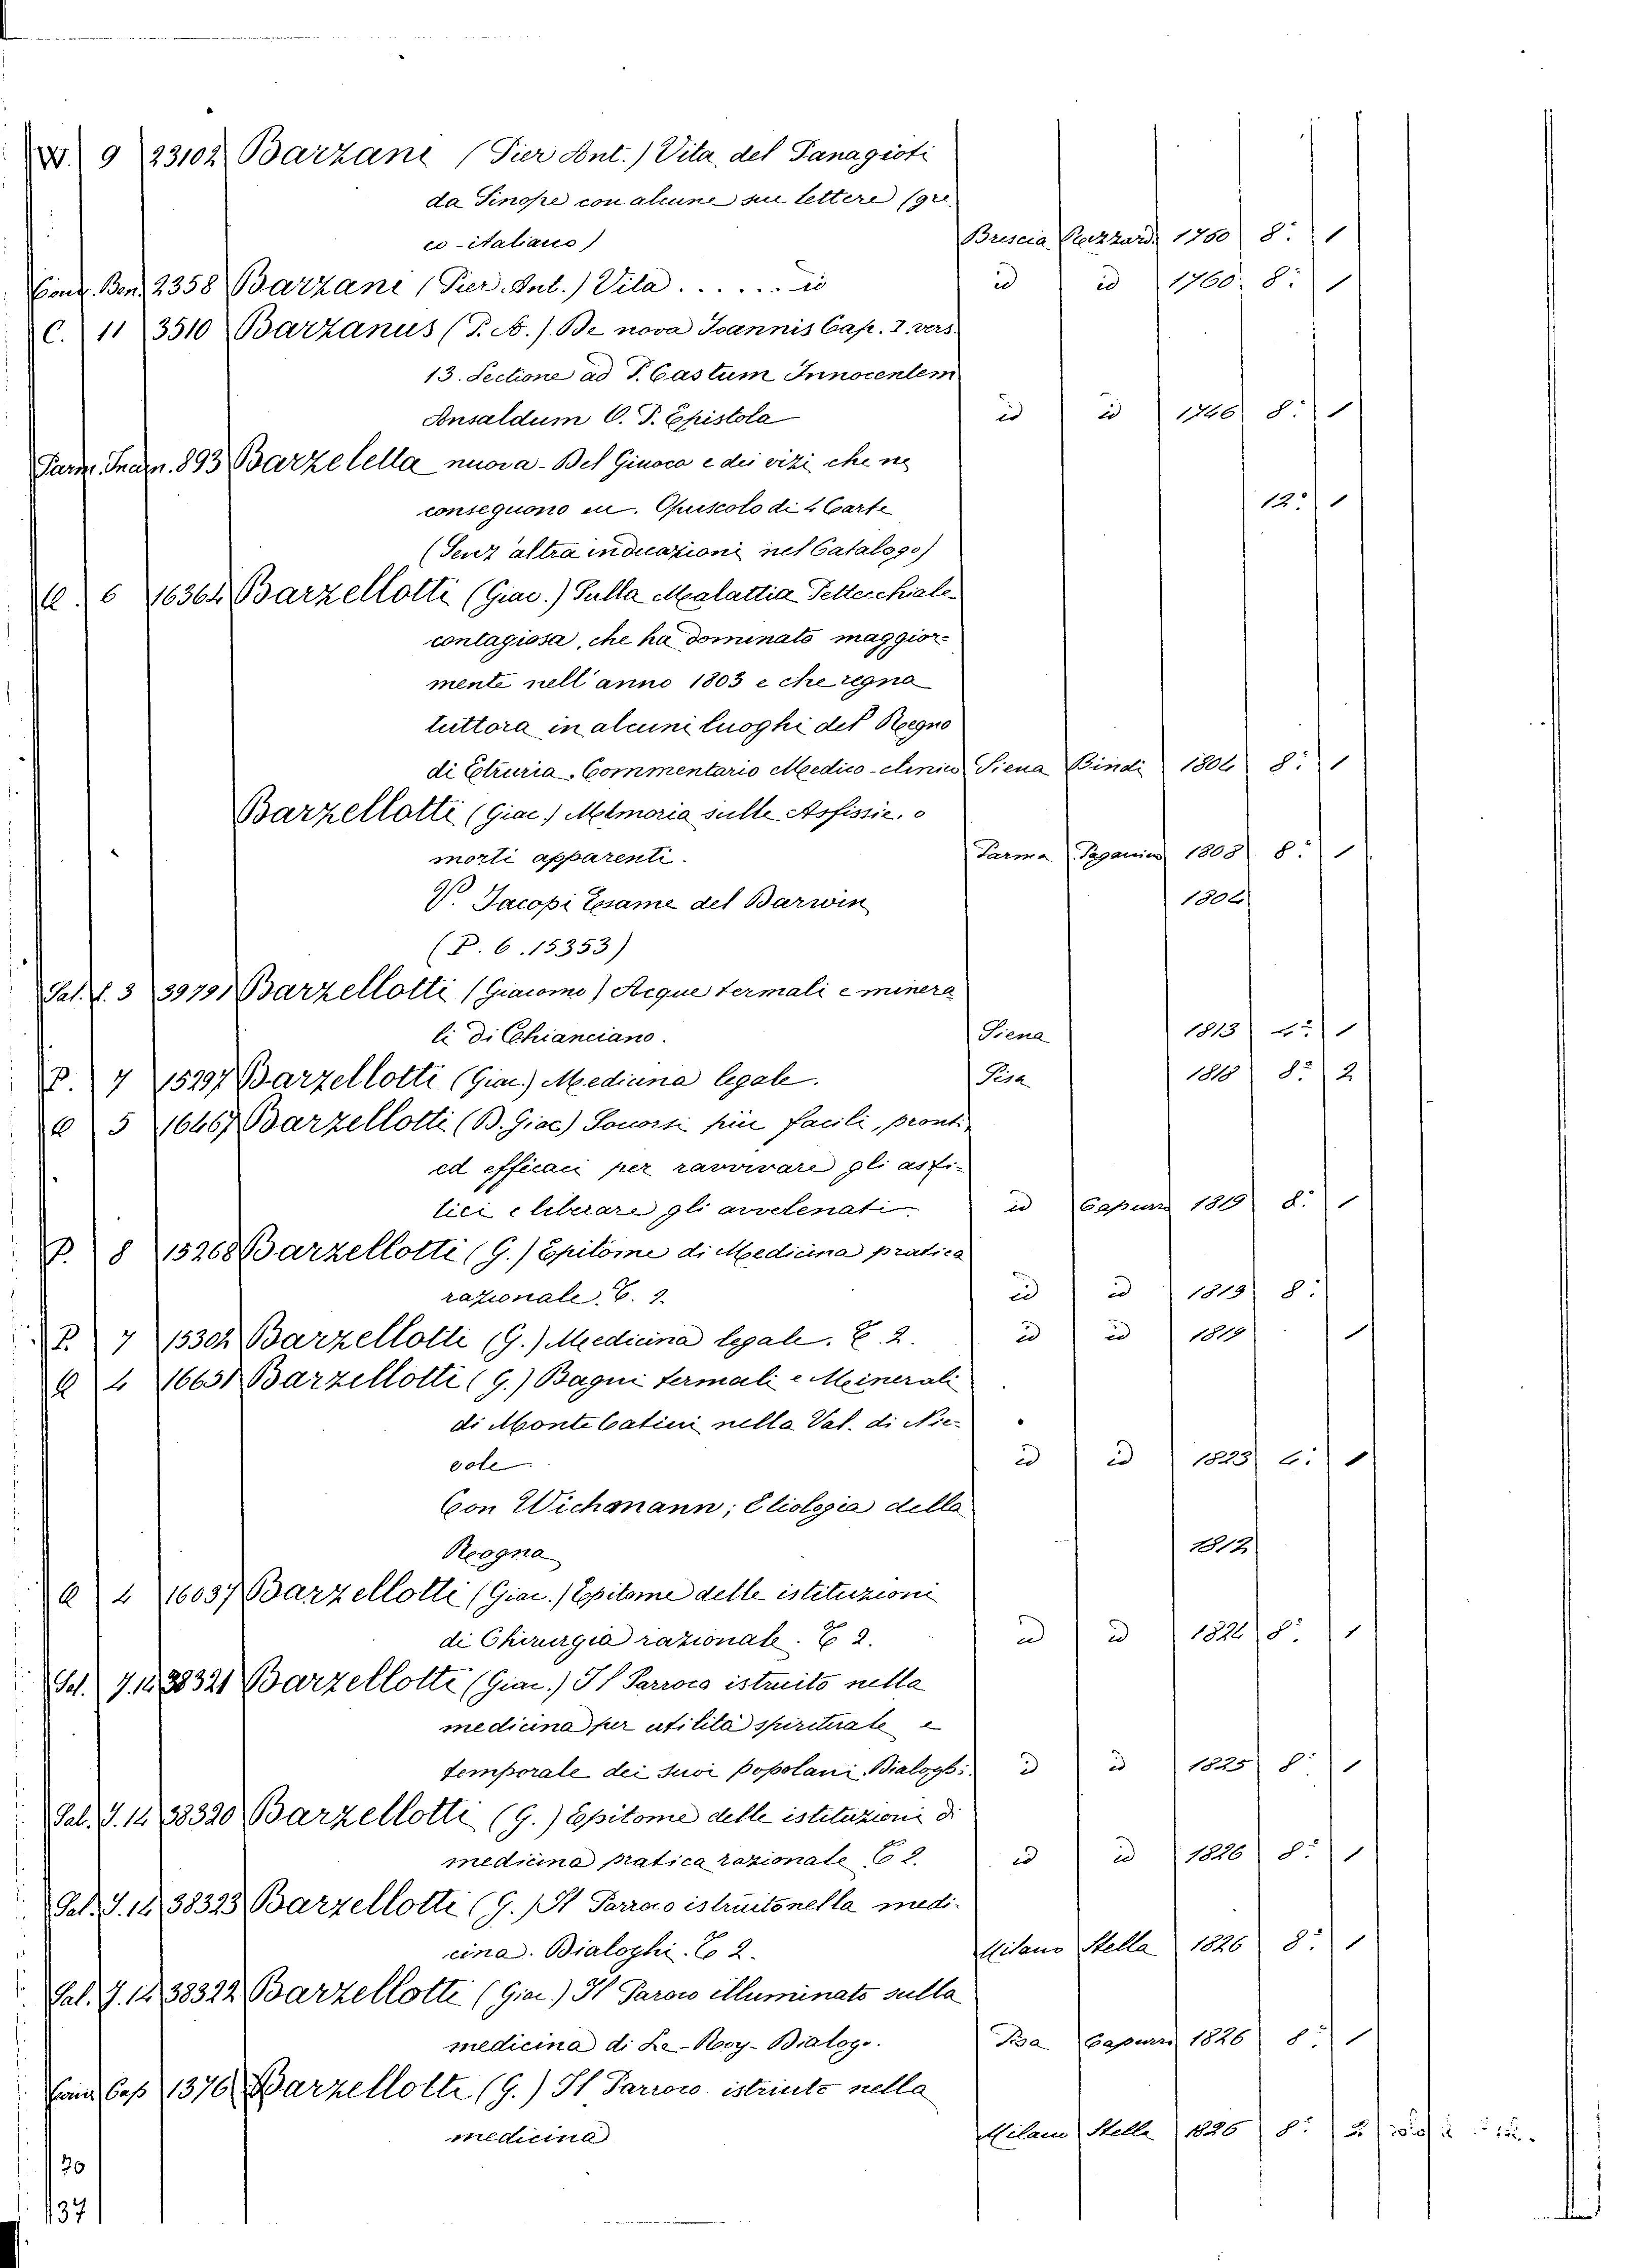 9 23102 Barzani (Pier Ant.) Vita del Panagioti
da Sinope con alcune sue lettere (gre-
co-italiano) Brescia Rizzardi 1760 8° 1
Cont. Ben. 2358 Barzani (Pier. Ant.) Vita ...... id id id 1760 8° 1
C. 11 3510 Barzanus (P. A.) De nova Joannis Cap. I. vers.
13. Lectione ad P. Castum Innocentem
Ansaldum O. P. Epistola id id 1746 8° 1
Parm. Inam. 893 Barzelella nuova - Del Giuoco e dei vizi che ne
conseguono in. Opuscolo di 4 Carte 12° 1
(Senz'altra indicazioni nel Catalogo)
Q. 6 16364 Barzellotti (Giac.) Sulla Malattia Petecchiale
contagiosa, che ha dominato maggior-
mente nell'anno 1803 e che regna
tuttora in alcuni luoghi del Regno
di Etruria. Commentario Medico-clinico Siena Bindi 1804 8° 1
Barzellotti (Giac.) Memoria sulle Asfissie, o
morti apparenti. Parma Paganino 1808 8° 1
V. Jacopi Esame del Darwin 1804
(P. 6. 15353)
Pal. f. 3 39791 Barzellotti (Giacomo) Acque termali e minera
li di Chianciano. Siena 1813 4° 1
P. 7 15297 Barzellotti (Giac.) Medicina legale. Pisa 1818 8° 2
Q 5 16467 Barzellotti (D. Giac) Soccorsi più facili, pronti,
ed efficaci per ravvivare gli asfi-
tici e liberare gli avvelenati id Capurro 1819 8° 1
P. 8 15268 Barzellotti (G.) Epitome di Medicina pratica
razionale. id id 1819 8°
P. 7 15302 Barzellotti (G.) Medicina legale. E. 2. id id 1819 1
Q 4 16631 Barzellotti (G.) Bagni termali e Minerali
di Monte Catini nella Val. di Nie-
vole id id 1823 1
Con Wichmann; Etiologia della
Rogna 1812
Q 4 16037 Barzellotti (Giac.) Epitome delle istituzioni
di Chirurgia razionale. E 2. id id 1824 8° 1
Pal. J. 14 38321 Barzellotti (Giac.) Il Parroco istruito nella
medicina per utilità spirituale e
temporale dei suoi popolani. Dialoghi. id id 1825 8° 1
Pal. J. 14 38320 Barzellotti (G.) Epitome delle istituzioni di
medicina pratica razionale E 2. id id 1826 8° 1
Pal. J. 14 38323 Barzellotti (G.) Il Parroco istruito nella medi-
cina. Dialoghi. E 2. Milano Stella 1826 8° 1
Pal. J. 14 38322 Barzellotti (Giac.) Il Paroco illuminato sulla
medicina di Le-Roy - Dialogo. Pisa Capurro 1826 8° 1
Cap 1376 Barzellotti (G.) Il Parroco istruito nella
medicina Milano Stella 1826 8° 2
30
37